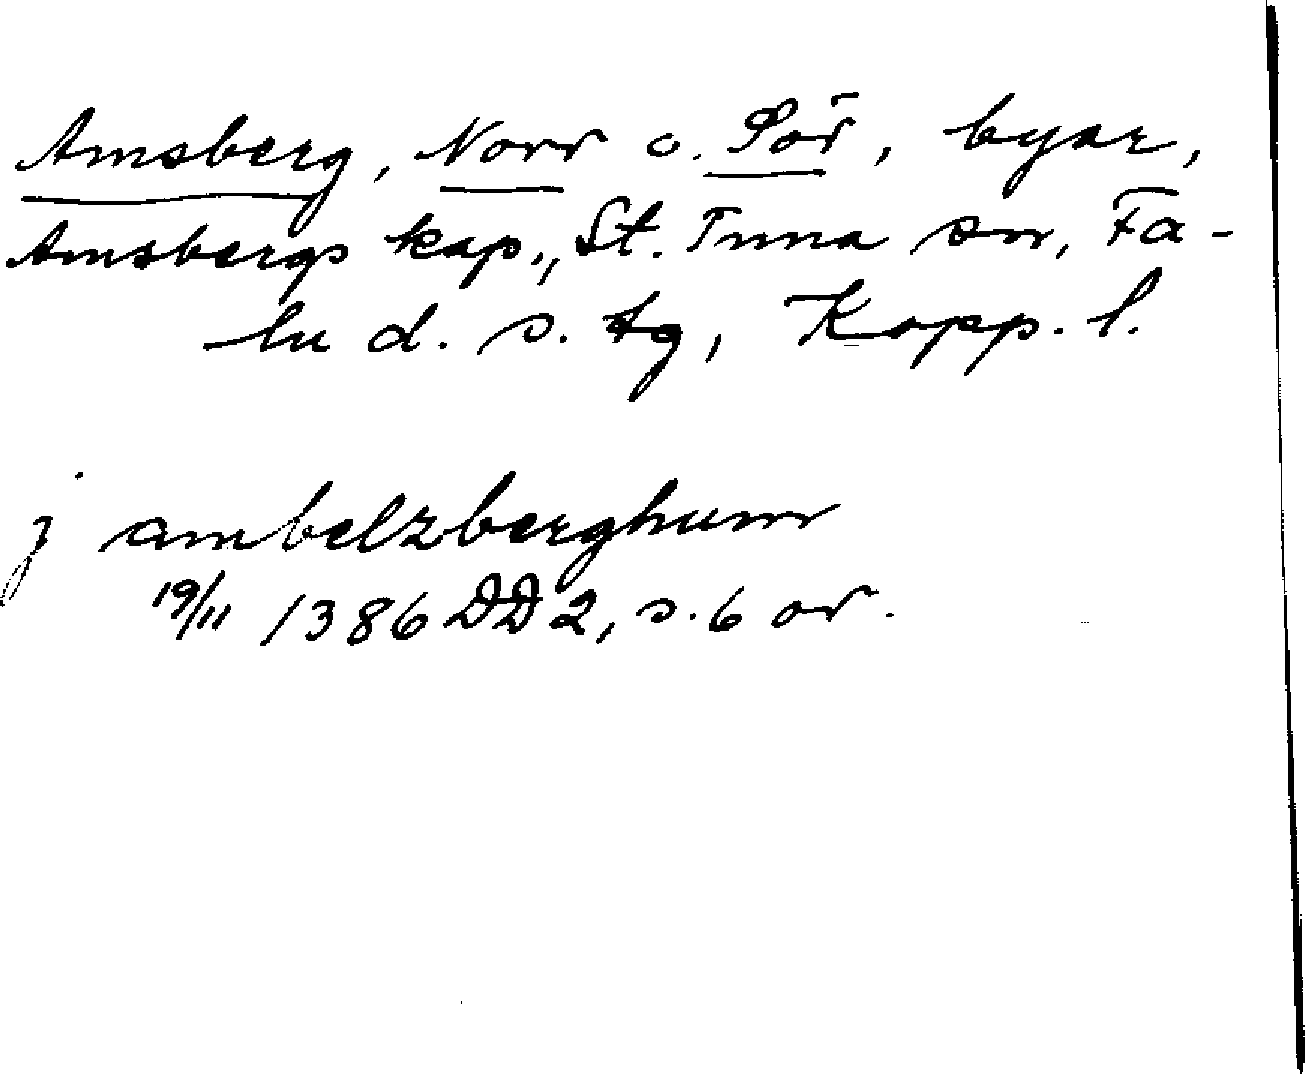 Amsberg, Norr o. Sör, byar,
Amsbergs kap., St. Tuna sn, Fa-
lu d. s. tg, Kopp. l.
j ambelzberghum
19/11 1386 DD 2, s. 6 or.